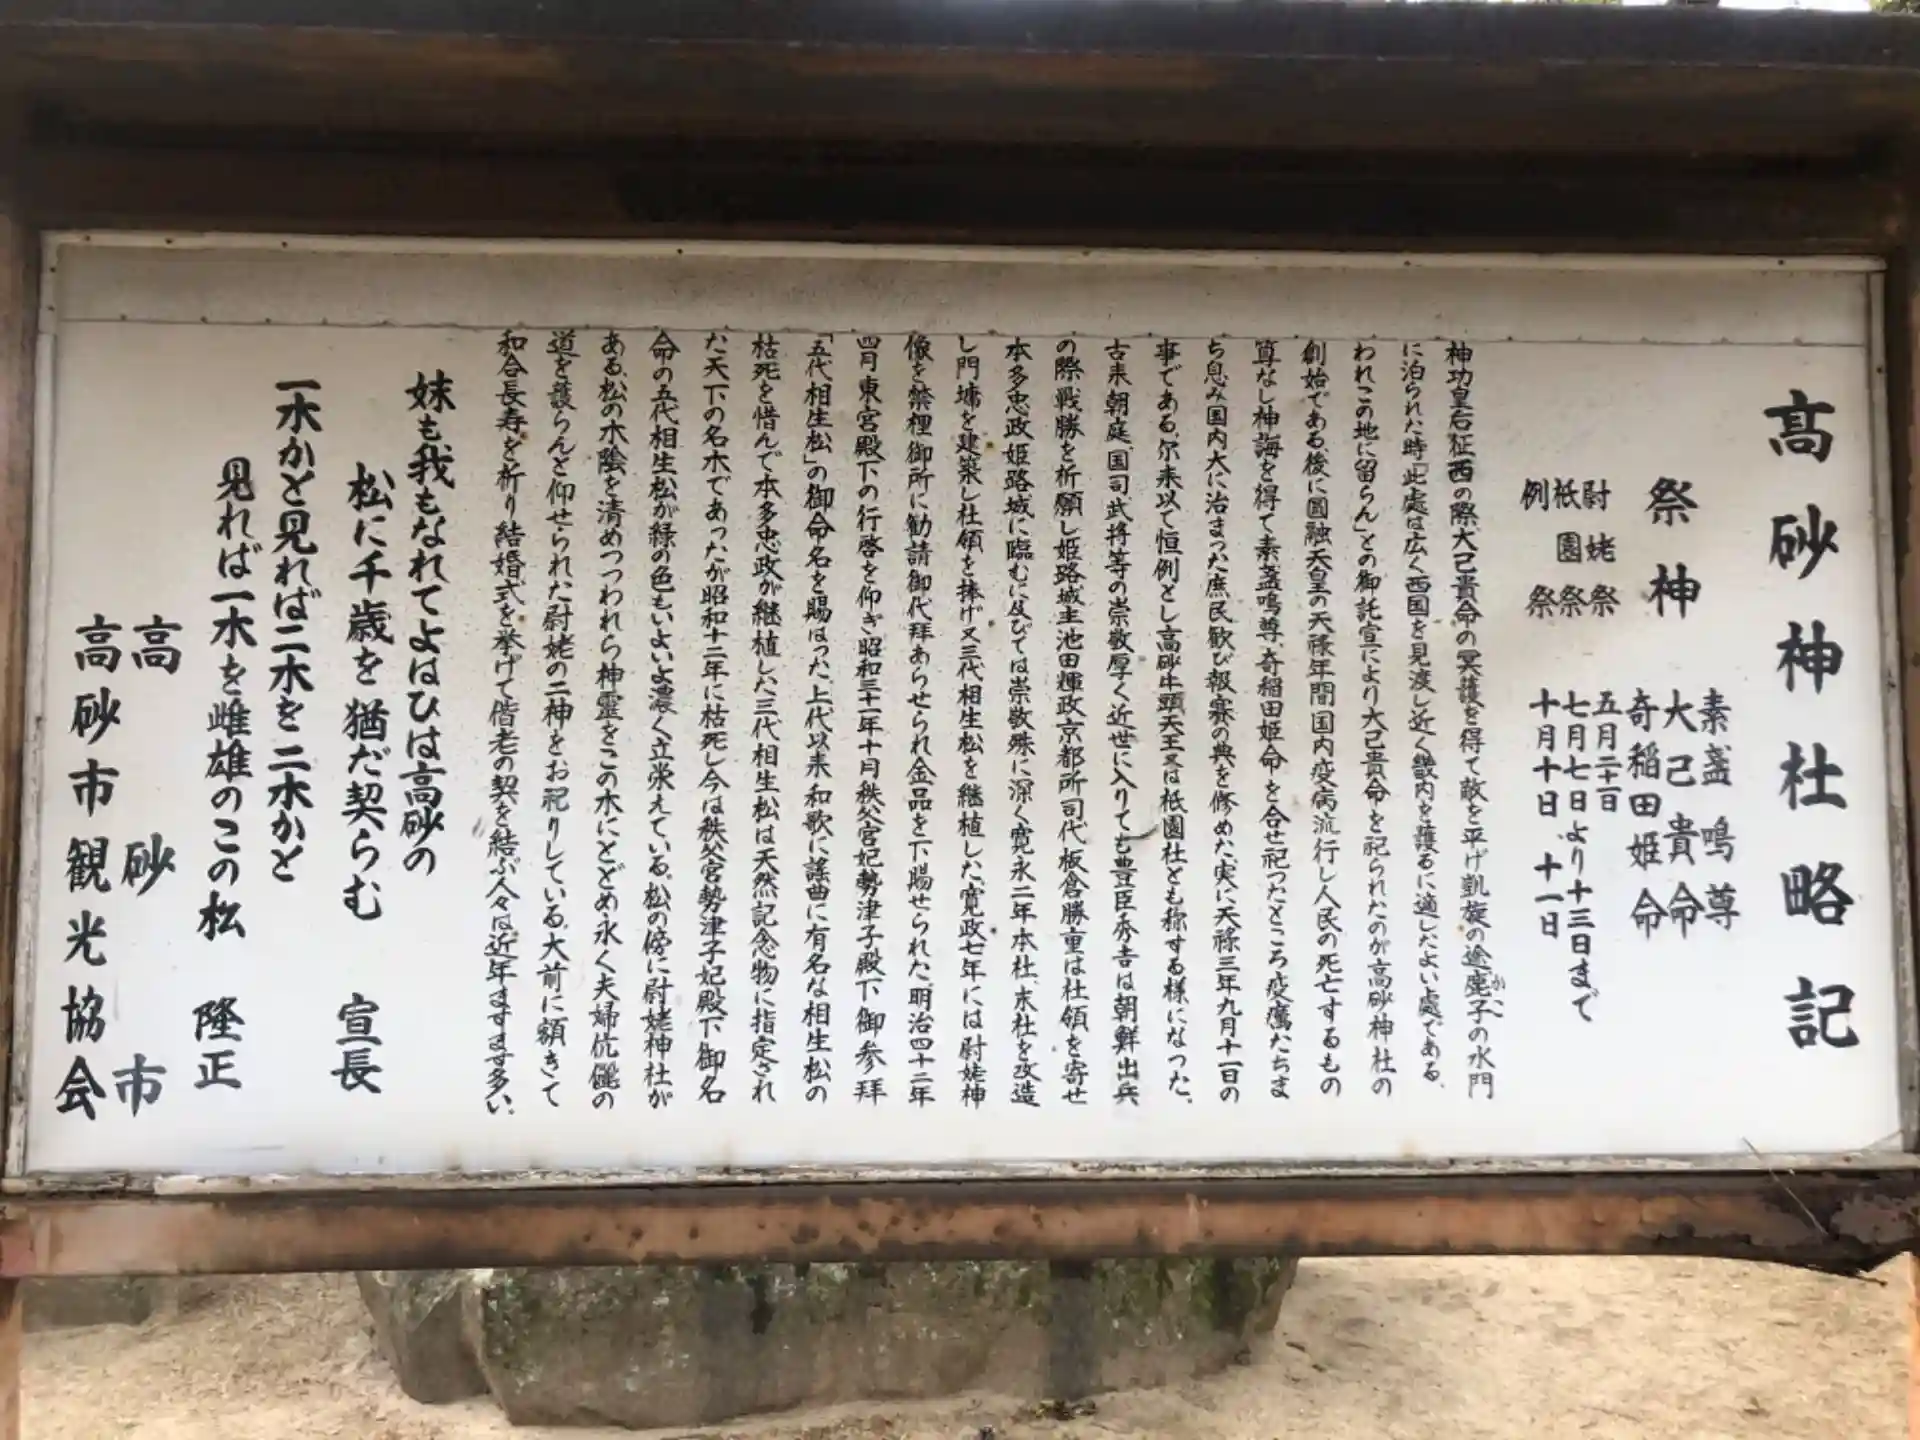 高砂神社略記
祭神 素盞鳴尊
大己貴命
奇稲田姫命
尉姥祭 五月二十一日
祇園祭 七月七日より十三日まで
例祭 十月十日、十一日
神功皇后征西の際大己貴命の冥護を得て敵を平げ凱旋の途鹿子の水門
かこ
に泊られた時「此處は広く西国を見渡し近く畿内を護るに適したよい處である、
われこの地に留らん」との御託宣により大己貴命を祀られたのが高砂神社の
創始である後に圓融天皇の天禄年間国内疫病流行し人民の死亡するもの
算なし神誨を得て素盞鳴尊、奇稲田姫命を合せ祀ったところ疫癘たちま
ち息み国内大に治まった庶民歓び報賽の典を修めた実に天禄三年九月十一日の
事である、尓来以て恒例とし高砂牛頭天王又は祇園社とも称する様になった、
古来朝庭、国司武将等の崇敬厚く近世に入りても豊臣秀吉は朝鮮出兵
の際戦勝を祈願し姫路城主池田輝政京都所司代板倉勝重は社領を寄せ
本多忠政姫路城に臨むに及びては崇敬殊に深く寛永二年本社、末社を改造
し門墉を建築し社領を捧げ又三代相生松を継植した、寛政七年には尉姥神
像を禁裡御所に勧請御代拝あらせられ金品を下賜せられた、明治四十二年
四月東宮殿下の行啓を仰ぎ昭和三十一年十月秩父宮妃勢津子殿下御参拝
「五代相生松」の御命名を賜はった、上代以来和歌に謡曲に有名な相生松の
枯死を惜んで本多忠政が継植した三代相生松は天然記念物に指定され
た天下の名木であったが昭和十二年に枯死し今は秩父宮勢津子妃殿下御名
命の五代相生松が緑の色もいよいよ濃く立栄えている、松の傍に尉姥神社が
ある、松の木陰を清めつつわれら神霊をこの木にとどめ永く夫婦伉儷の
道を護らんと仰せられた尉姥の二神をお祀りしている、大前に額きて
和合長寿を祈り結婚式を挙げて偕老の契を結ぶ人々は近年ますます多い、
妹も我もなれてよはひは高砂の
松に千歳を猶だ契らむ 宣長
一木かと見れば二木を二木かと
見れば一木を雌雄のこの松 隆正
高砂市
高砂市観光協会